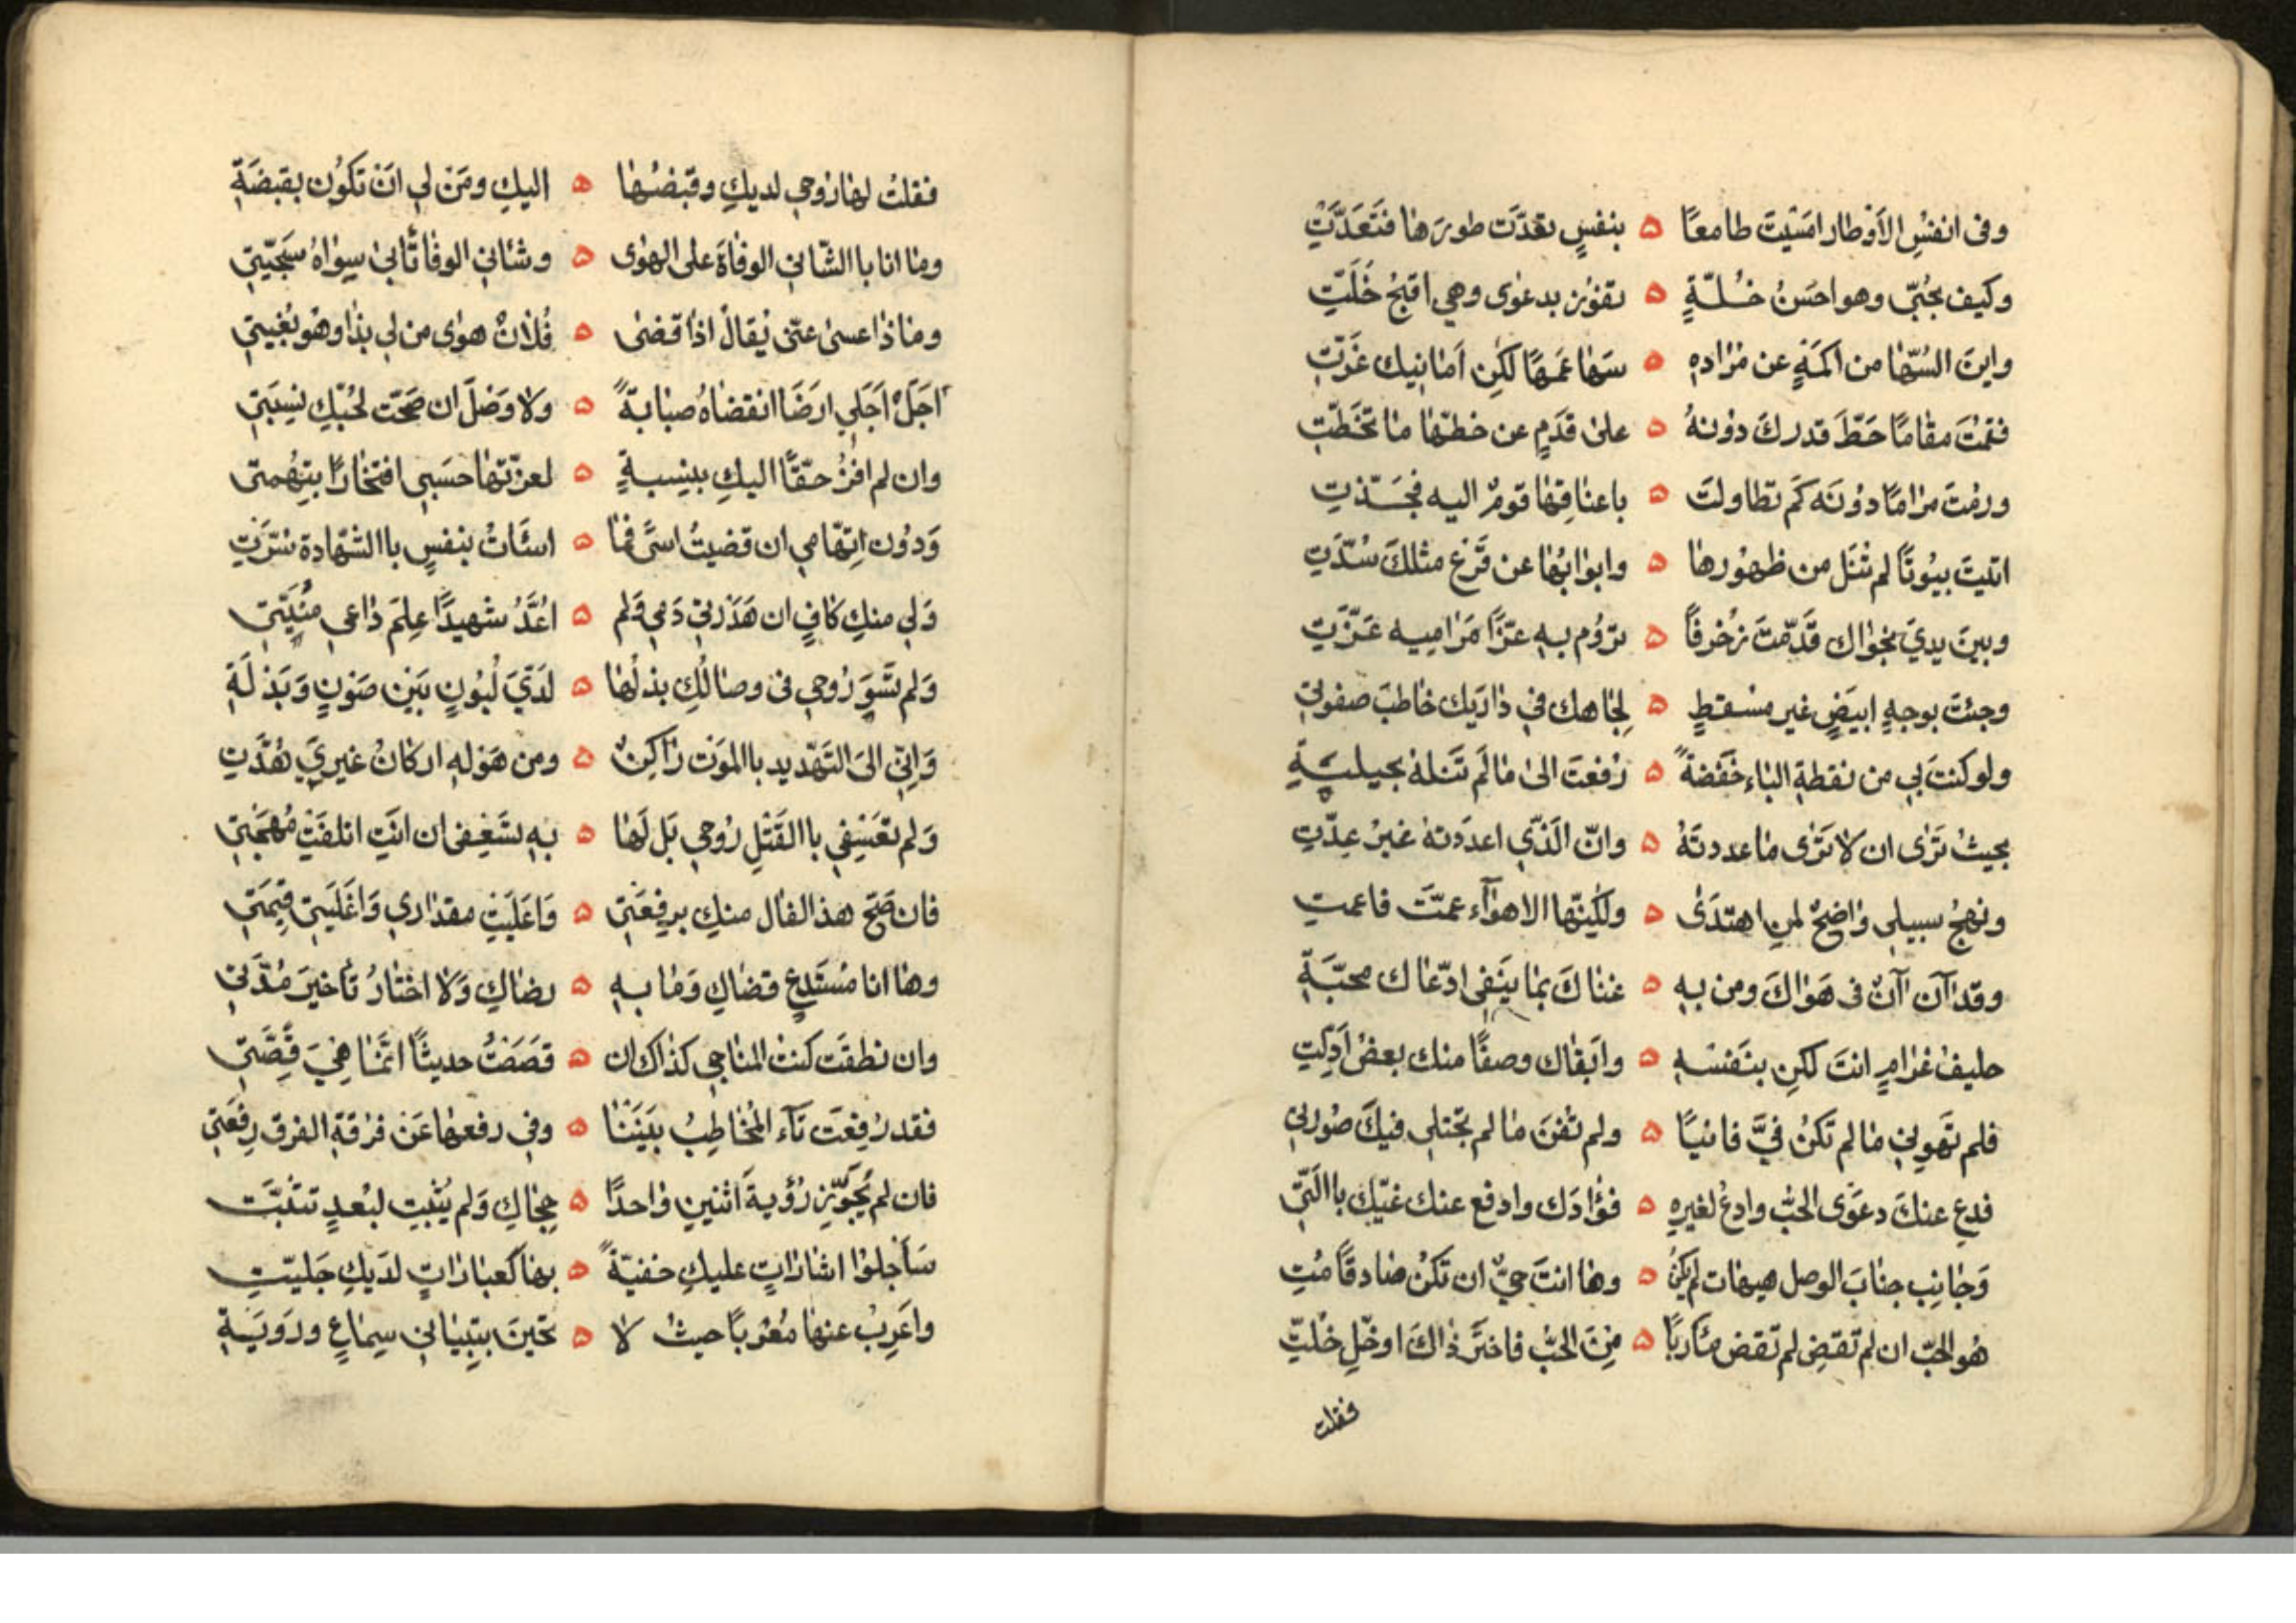 وفى انفسِ الأوْطار امسَيْتَ طامعًا ۵ بنفسٍ تعَدَّت طورَها فتَعَدَّتِ
وكيف بحُبّى وهو احسَنُ خُلّةٍ ۵ تفوُز بدعوٰى وهى اقبحُ خَلّتِ
واينَ السُّهٰا من اكمَهٍ عن مُرٰاده ۵ سَهٰا عَمَهًا لٰكن اَمٰانيك غرّتِ
فقمْتَ مقٰامًا حَطَّ قدرك دوُنهُ ۵ علىٰ قدَمٍ عن خطّهٰا مٰا تخَطّتِ
ورمْتَ مرٰامًا دوُنَه كَم تطاولتَ ۵ باعنٰاقِهٰا قومٌ اليه فجَذّتِ
اتيتَ بيُوتًا لم تُنَل من ظهُورِهٰا ۵ وابوٰابُهٰا عن قرْعِ مثلكَ سُدّتِ
وبينَ يديَ نجوٰاك قدّمتَ زخُرفًا ۵ ترُوم به عزًّا مَرٰاميه عَزّتِ
وجئتَ بوجهٍ ابيَضٍ غير مسْقطٍ ۵ لِجٰاهك فى دٰارَيك خٰاطبَ صفوتى
ولو كنتَ بى من نقطةِ البٰاء خفَضةً ۵ رُفعتَ الىٰ مٰا لَم تَنَلهُ بحيلةِ
بحيثُ ترَٰى ان لا ترَٰى مٰا عددتَهُ ۵ وانّ الذّى اعدَدتهُ غيرُ عِدّتِ
ونهجُ سبيلى وٰاضحٌ لمنِ اهتدَىٰ ۵ ولٰكنّهٰا الاهوٰآء عمّتَ فاعمتِ
وقد آن آنٌ فى هَوٰاكَ ومن به ۵ عنٰاكَ بمٰا ينَفى ادّعٰاك محبّةِ
حليفُ غرٰامٍ انتَ لكن بنَفسه ۵ وابَقٰاك وصفًا منك بعضُ اَدلّتِ
فلم تَهوِنى مٰا لم تكُنْ فىَّ فانيًا ۵ ولم تفْنَ مٰا لم تجتلى فيكَ صُورتى
فدعِ عنكَ دعوَى الحبِّ وادعُ لغيرِه ۵ فؤٰادَك وادفع عنك غيّكَ باالَّتِى
وَجٰانِب جنٰابَ الوصل هيهات لم يكنُ ۵ وهٰا انتَ حىٌّ ان تكنُ صٰادقًا مُتِ
هُو الحبّ ان لم تقضِ لم تقض مأربًا ۵ مِنَ الحبِّ فاختَر ذٰاكَ او خلِّ خلّتِ
فقلت
فقلتُ لهٰا رُوحى لديكِ وقبَضُهٰا ۵ اليكِ ومَن لى ان تكوُن بقبضَةِ
ومٰا انا باالشّانى الوفٰاةَ على الهوٰى ۵ وشٰانى الوفٰا تأبىٰ سِوٰاهُ سَجيّتى
ومٰاذٰا عسىٰ عنّى يُقالُ اذٰا قضىٰ ۵ فُلٰانٌ هوٰى من لى بذٰا وهُو بُغيتى
اَجَلْ اَجَلى ارضَا انقضٰاهُ صبٰابةً ۵ ولا وَصْلَ ان صَحّت لحُبّكِ نِسبَتى
وان لم افزْ حقًّا اليكِ بنسبةٍ ۵ لعزّتهٰا حسَبى افتخٰارًا بتهُمتى
وَدوُن اتهّامى ان قضيتُ اسًى فمٰا ۵ اسأتُ بنفسٍ باالشهٰادة سُرّتِ
وَلى منكِ كافٍ ان هَدَرتى دَمى وَلم ۵ اعُدَّ شهيدًا عِلمُ دٰاعى منيّتى
وَلم تَسوَ رُوحى فى وصٰالكِ بذلُهٰا ۵ لدَىَّ لبُونٍ بَيَن صَونٍ وَبَذلَةِ
وَانّى الىَ التّهديد باالموَت رٰاكنٌ ۵ ومن هَوْله اركانُ غيرىَ هُدّتِ
وَلم تعَسِفى باالقَتلِ رُوحى بَل لَهٰا ۵ به تسَعِفى ان انَتِ اتلفَتِ مُهجَتى
فان صَحّ هذ الفٰال منكِ برفعَتى ۵ وَاعَليَتِ مقدٰارى وَاغَليَتِ قِيمَتى
وهٰا انا مُستَدعٍ قضٰاكِ وَمٰا به ۵ رضٰاكِ وَلا اختٰارُ تأخيرَ مُدّتى
وان نطقَت كنتُ المنٰاجى كذٰاك ان ۵ قصَصَتُ حديثًا انّمٰا هِىَ قَصّتِ
فقد رُفِعَت تآء المُخٰاطِبُ بيَنَنٰا ۵ وفى رفعهٰا عَن فرُقةِ الفرق رِفْعَتى
فان لم يُجوّز رُؤيةَ اثنين وٰاحدًا ۵ حِجٰاكِ وَلم يُثبِت لبُعدٍ تثبّتَ
سَأجلوُا اشٰارٰاتٍ عليكِ خفيّةً ۵ بهٰا كعبٰارٰاتٍ لدَيكِ جَليّتِ
واعَرِبُ عنهٰا مُغربًا حيثُ لا ۵ تحينَ بتِبيٰانى سِمٰاعٍ ورَويَةِ